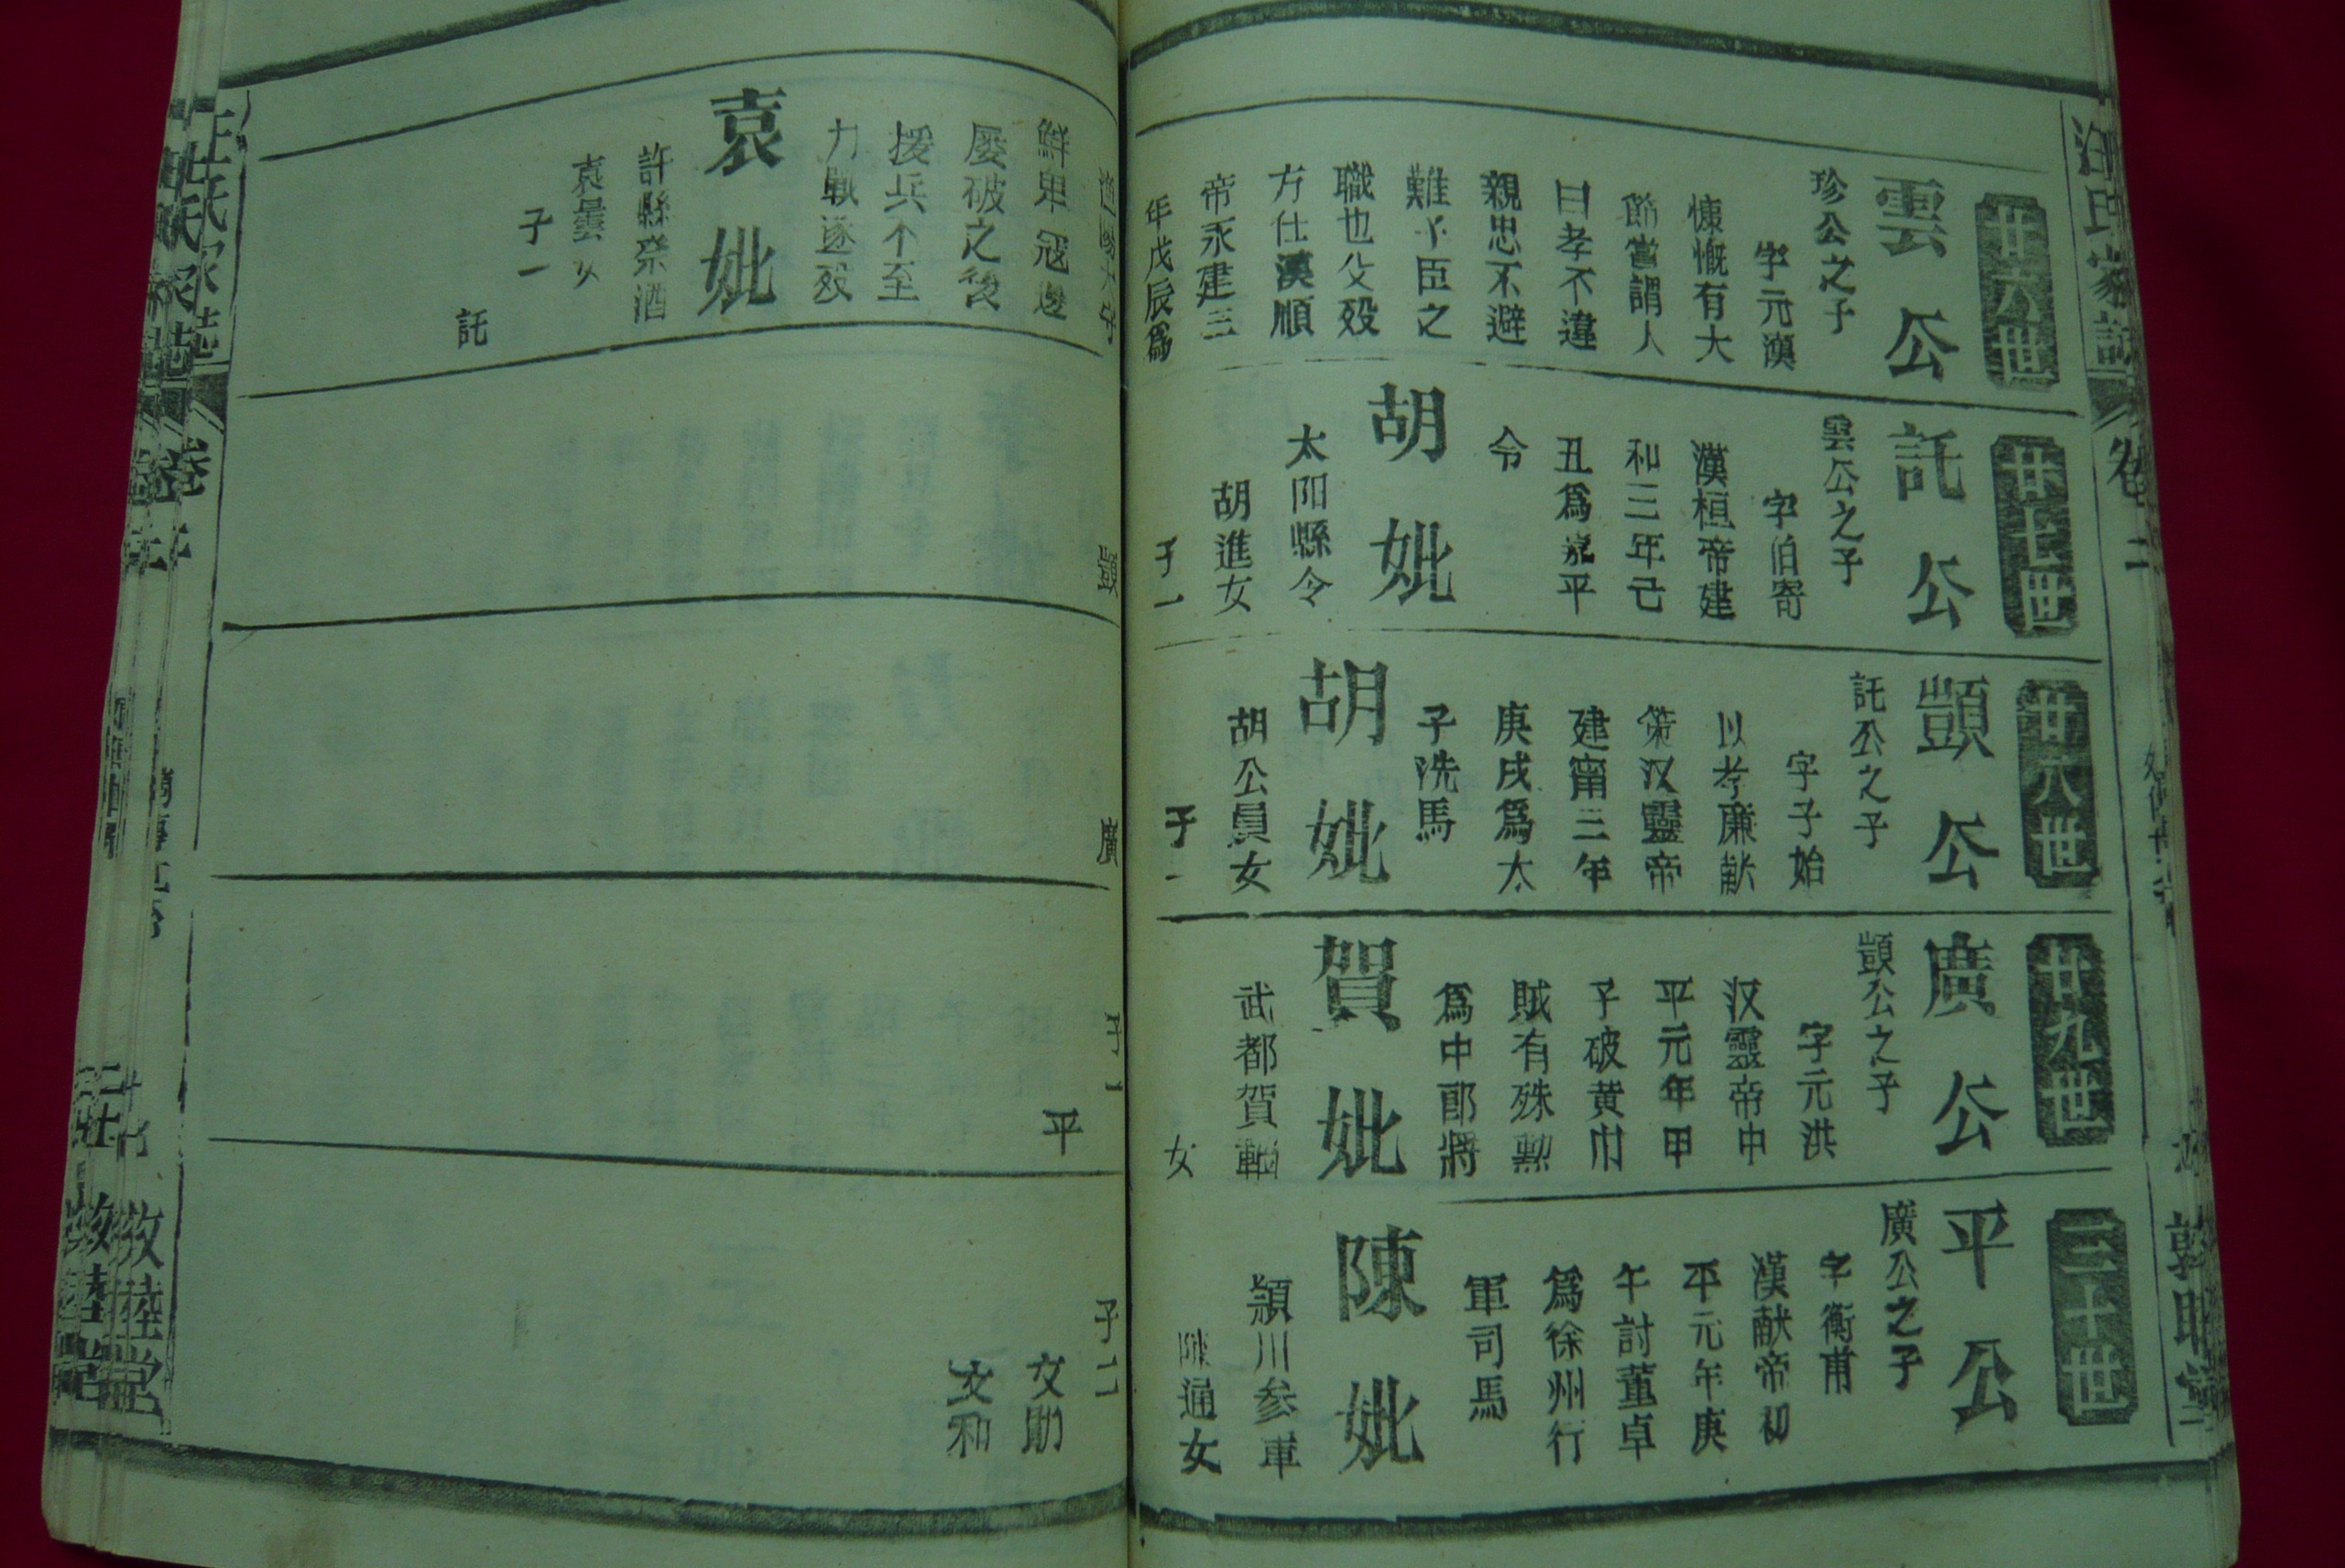 汪氏家譜
卷二
敦睦堂
廿六世
雲公
珍公之子
字元漢
慷慨有大
節嘗謂人
曰孝不違
親忠不避
難人臣之
職也父歿
方仕漢順
帝永建三
年戊辰爲
鮮卑冦邊
屡破之後
援兵不至
力戰遂歿
袁妣
許縣祭酒
袁曇女
子一
託
廿七世
託公
雲公之子
字伯寄
漢桓帝建
和三年己
丑爲嘉平
令
胡妣
太阳縣令
胡進女
子一
顗
廿八世
顗公
託公之子
字子始
以孝廉献
策汉靈帝
建甯三年
庚戌爲太
子洗馬
胡妣
胡公員女
子一
廣
廿九世
廣公
顗公之子
字元洪
汉靈帝中
平元年甲
子破黄巾
賊有殊勲
爲中郎將
賀妣
武都賀
女
子一
平
三十世
平公
廣公之子
字衡甫
漢献帝初
平元年庚
午討董卓
爲徐州行
軍司馬
陳妣
潁川参軍
陳通女
子二
文勛
文和
汪氏家譜
敦睦堂